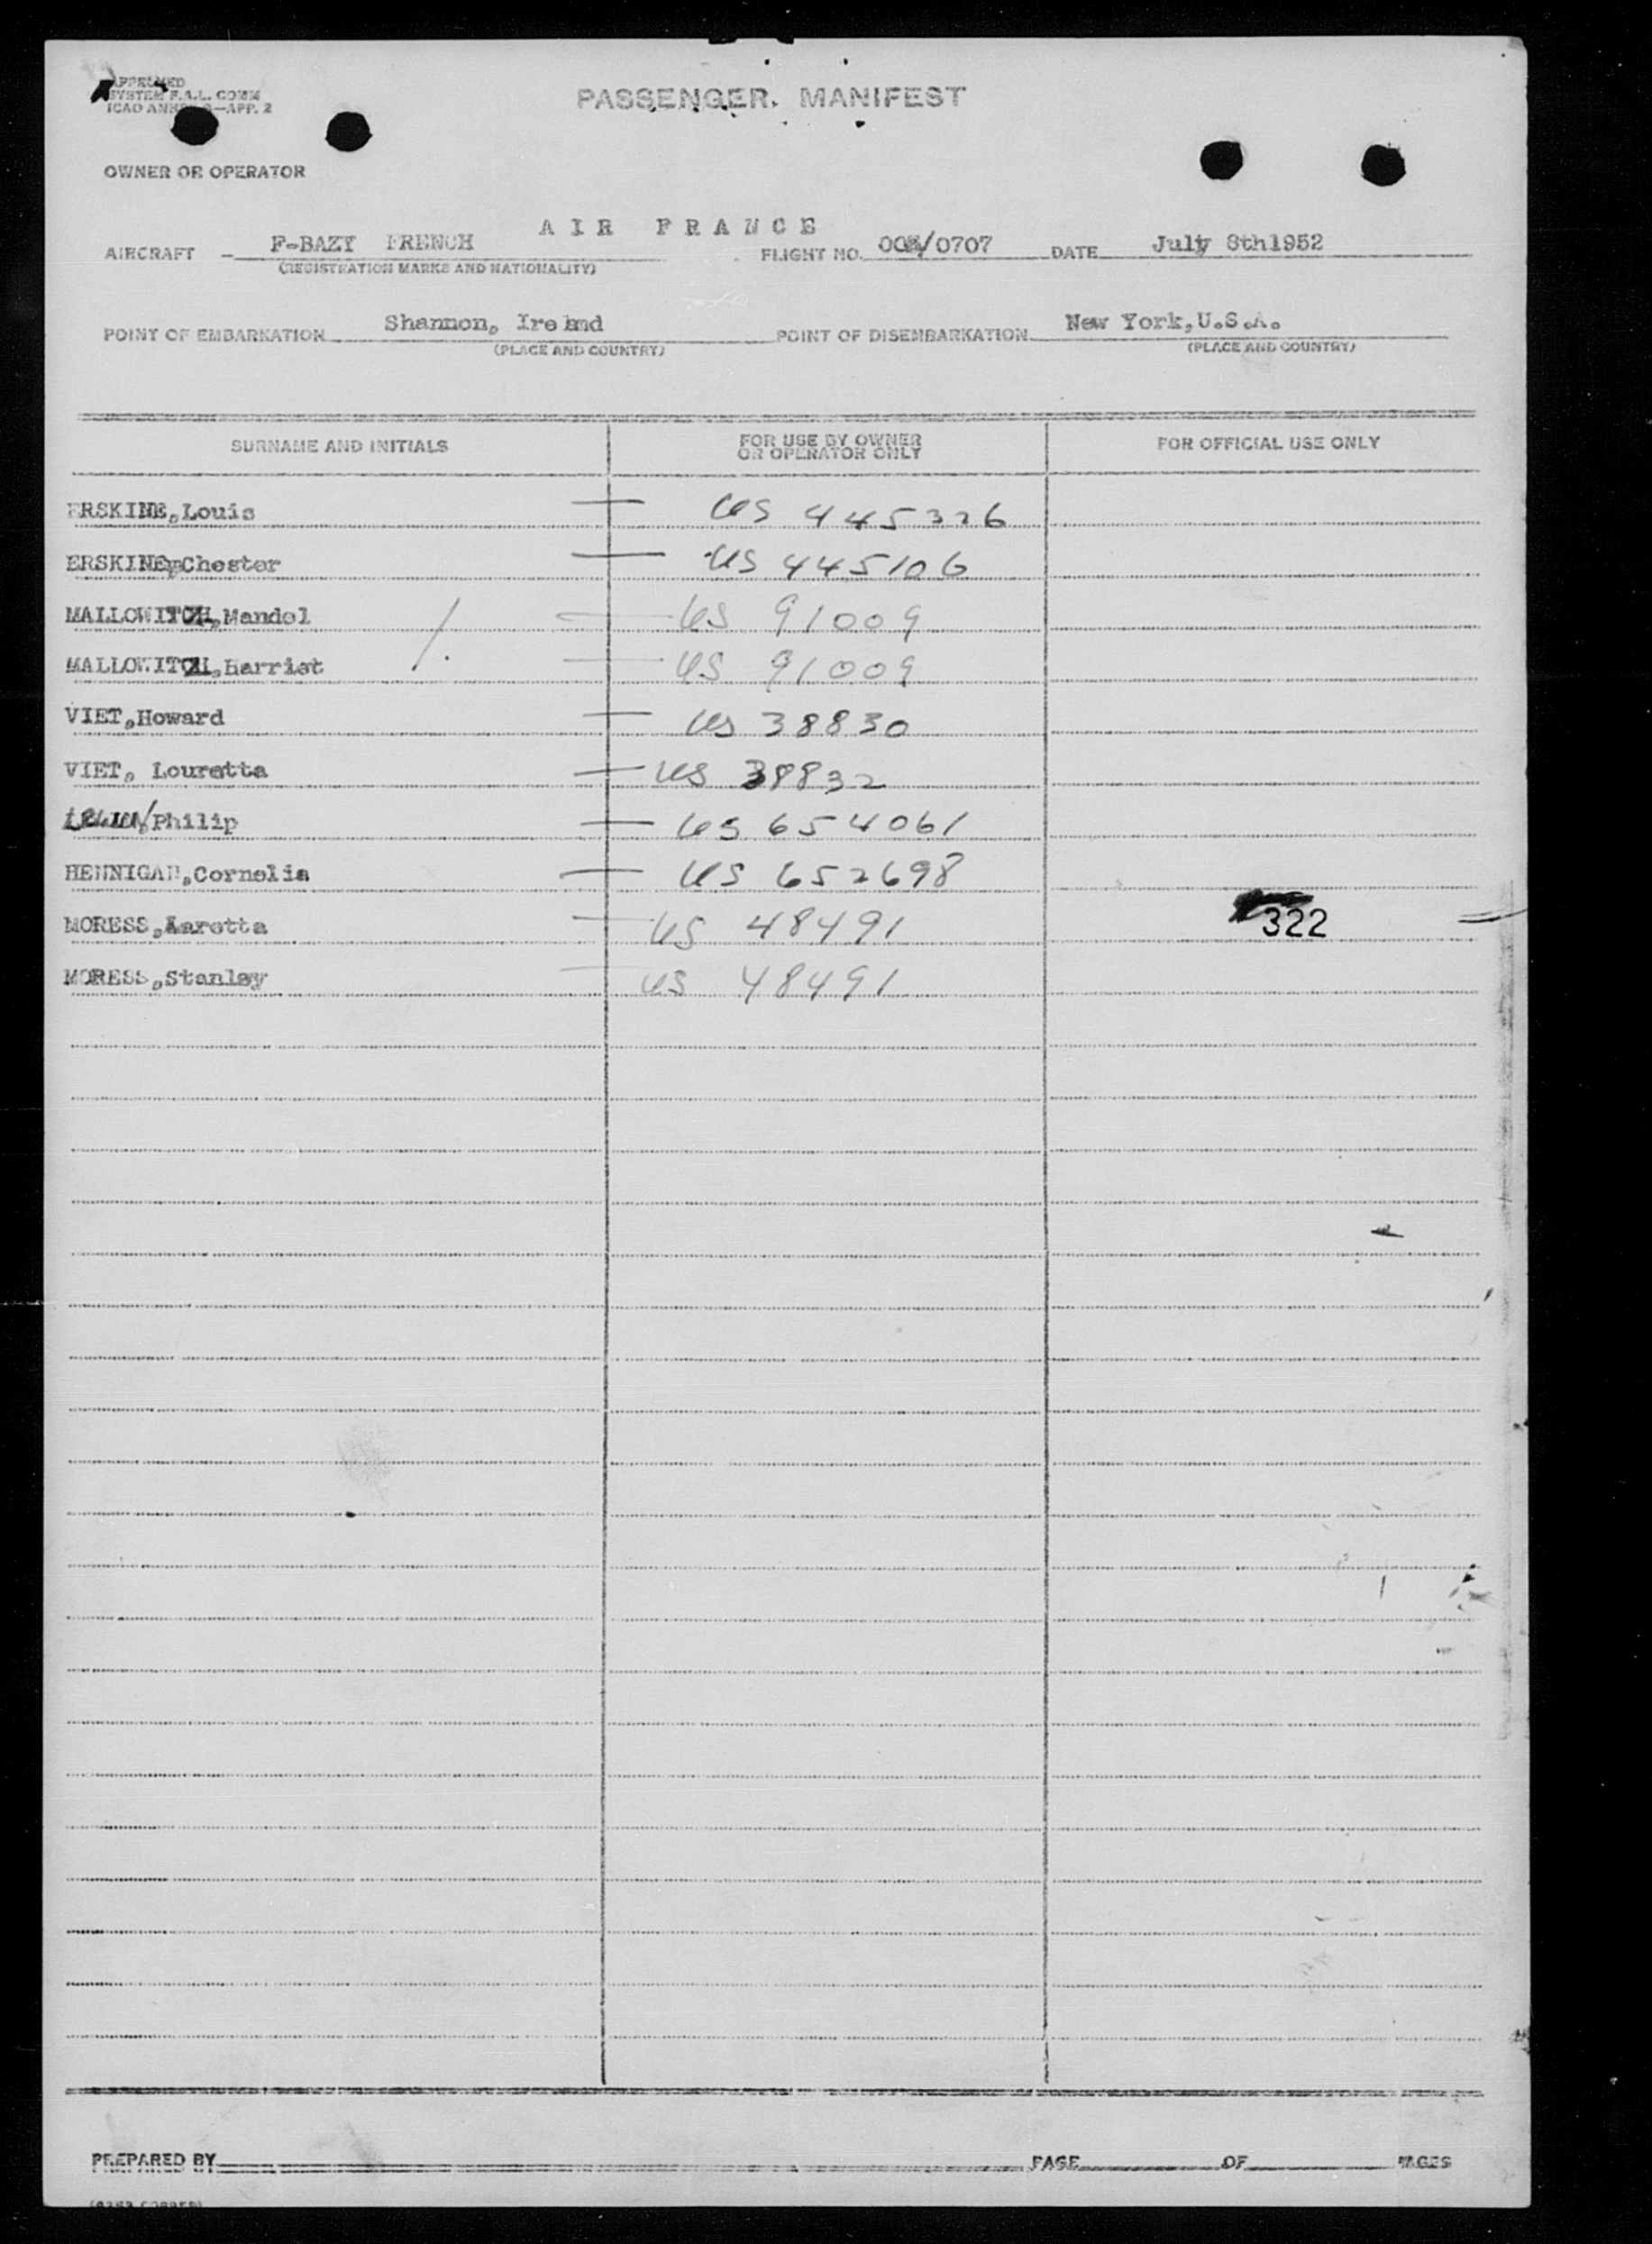 APPROVED
SYSTEM F.A.L. COMM
ICAO APP. 2
PASSENGER MANIFEST
OWNER OR OPERATOR
AIR FRANCE
AIRCRAFT - F-BAZY FRENCH FLIGHT NO. /0707 DATE July 8th1952
(REGISTRATION MARKS AND NATIONALITY)
POINT OF EMBARKATION Shannon, Ireland POINT OF DISEMBARKATION New York,U.S.A.
(PLACE AND COUNTRY) (PLACE AND COUNTRY)
SURNAME AND INITIALS FOR USE BY OWNER OR OPERATOR ONLY FOR OFFICIAL USE ONLY
ERSKINE,Louis — US 445326
ERSKINE,Chester — US 445106
MALLOWITCH,Mandel — US 91009
MALLOWITCH,Harriet — US 91009
VIET,Howard — US 38830
VIET, Louretta — US 38832
Philip — US 654061
HENNIGAN,Cornelia — US 652698
MORESS,Aaretta — US 48491 322
MORESS,Stanley — US 48491
PREPARED BY PAGE OF PAGES